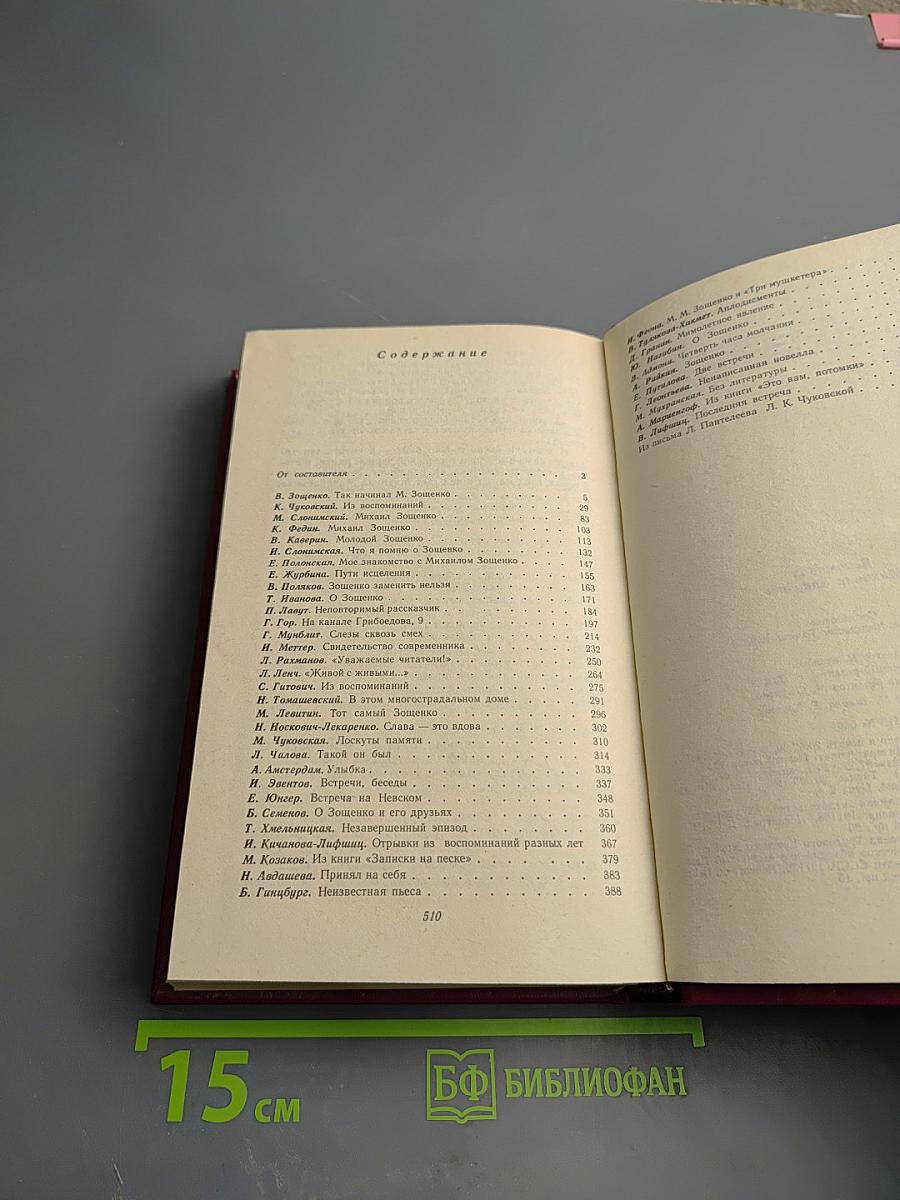 Содержание
От составителя . . . . . . . . . . . . . . . . . . 3
В. Зощенко. Так начинал М. Зощенко . . . . . . . . . 5
К. Чуковский. Из воспоминаний . . . . . . . . . . . 29
М. Слонимский. Михаил Зощенко . . . . . . . . . . 83
К. Федин. Михаил Зощенко . . . . . . . . . . . . 103
В. Каверин. Молодой Зощенко . . . . . . . . . . . 113
И. Слонимская. Что я помню о Зощенко . . . . . . . . 132
Е. Полонская. Мое знакомство с Михаилом Зощенко . . . . 147
Е. Журбина. Пути исцеления . . . . . . . . . . . . 155
В. Поляков. Зощенко заменить нельзя . . . . . . . . . 163
Т. Иванова. О Зощенко . . . . . . . . . . . . . . 171
П. Лавут. Неповторимый рассказчик . . . . . . . . . . 184
Г. Гор. На канале Грибоедова, 9 . . . . . . . . . . . 197
Г. Мунблит. Слезы сквозь смех . . . . . . . . . . . 214
И. Меттер. Свидетельство современника . . . . . . . . 232
Л. Рахманов. «Уважаемые читатели!» . . . . . . . . . 250
Л. Ленч. «Живой с живыми...» . . . . . . . . . . . . 264
С. Гитович. Из воспоминаний . . . . . . . . . . . . 275
Н. Томашевский. В этом многострадальном доме . . . . . 291
М. Левитин. Тот самый Зощенко . . . . . . . . . . . 296
Н. Носкович-Лекаренко. Слава — это вдова . . . . . . . 302
М. Чуковская. Лоскуты памяти . . . . . . . . . . . . 310
Л. Чалова. Такой он был . . . . . . . . . . . . . . 314
А. Амстердам. Улыбка . . . . . . . . . . . . . . . 333
И. Эвентов. Встречи, беседы . . . . . . . . . . . . 337
Е. Юнгер. Встреча на Невском . . . . . . . . . . . . 348
Б. Семенов. О Зощенко и его друзьях . . . . . . . . . 351
Т. Хмельницкая. Незавершенный эпизод . . . . . . . . 360
И. Кичанова-Лифшиц. Отрывки из воспоминаний разных лет 367
М. Козаков. Из книги «Записки на песке» . . . . . . . 379
Н. Авдашева. Принял на себя . . . . . . . . . . . . 383
Б. Гинцбург. Неизвестная пьеса . . . . . . . . . . . 388
510
И. Феона. М. М. Зощенко и «Три мушкетера» . . . .
В. Тулякова-Хикмет. Аплодисменты . . . . . .
Д. Гранин. Мимолетное явление . . . . . . .
Ю. Нагибин. О Зощенко . . . . . . . .
В. Адмони. Четверть часа молчания . . . . . .
А. Райкин. Зощенко . . . . . . . . .
Е. Путилова. Две встречи . . . . . . . .
Г. Леонтьева. Ненаписанная новелла . . . . . .
М. Мухранская. Без литературы . . . . . . .
А. Мариенгоф. Из книги «Это вам, потомки» . . .
В. Лифшиц. Последняя встреча . . . . . . .
Из письма Л. Пантелеева Л. К. Чуковской . . . .
15 см
БФ БИБЛИОФАН